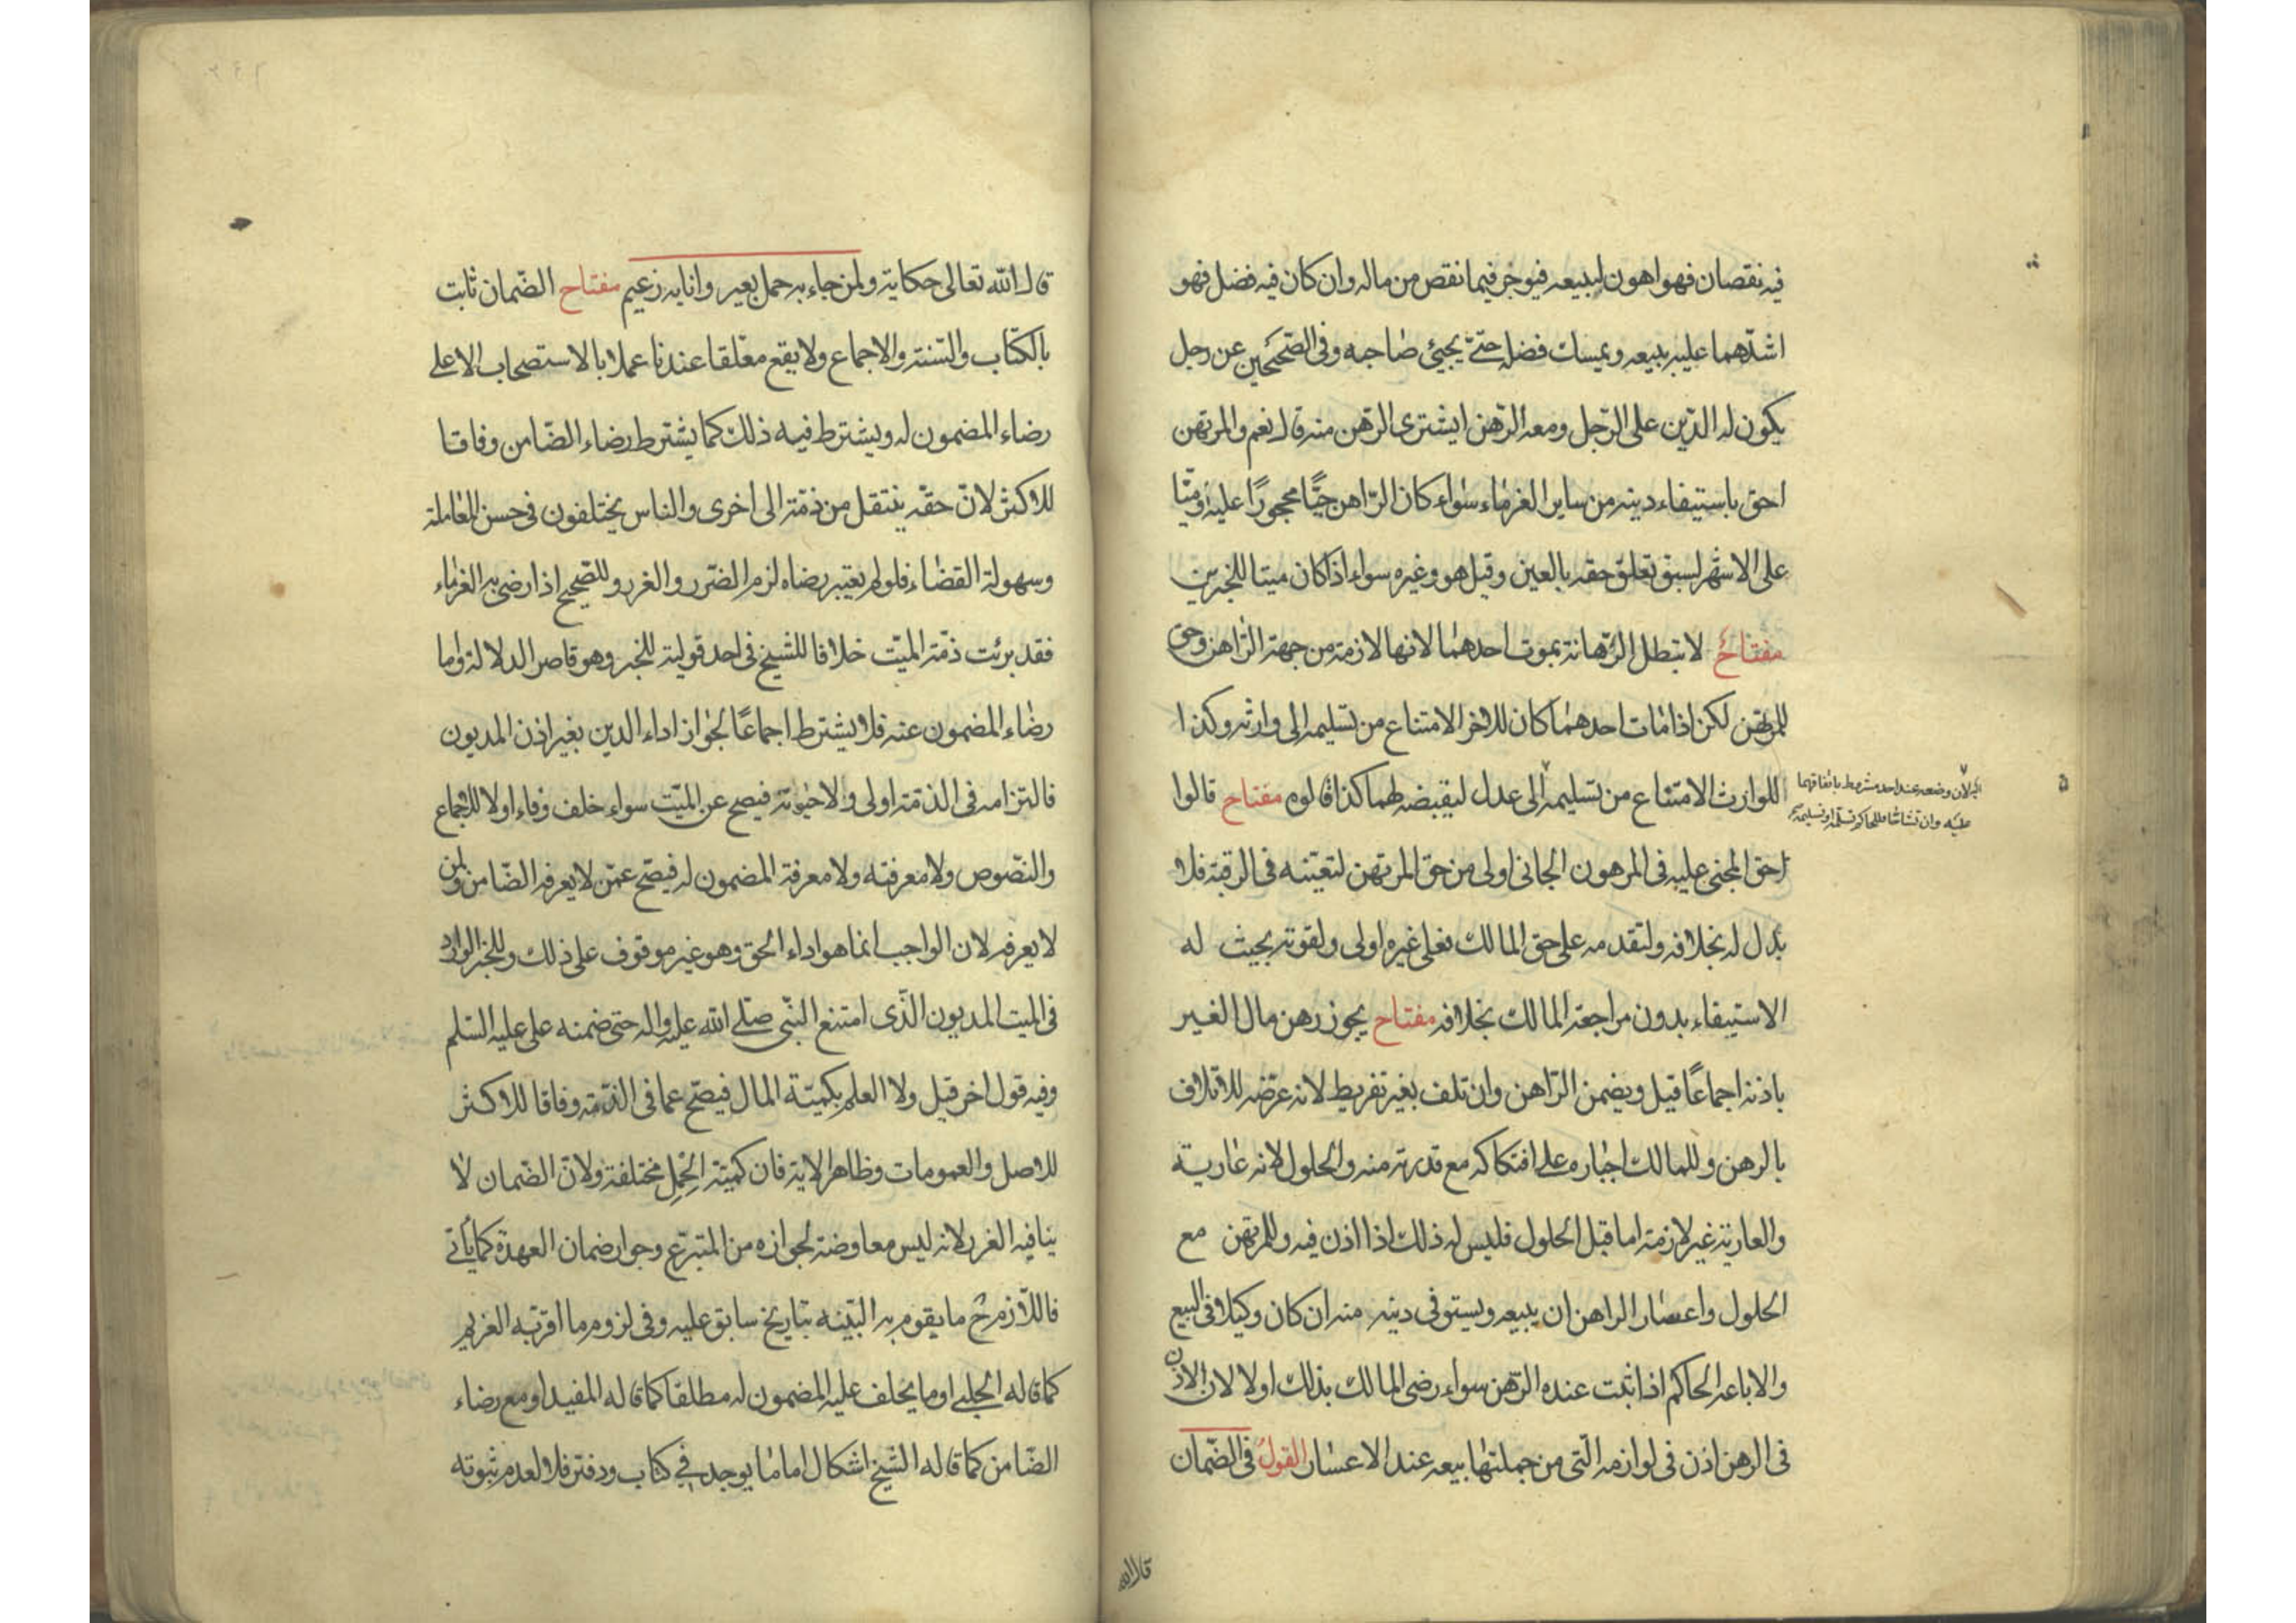 فيه نقصان فهو اهون لبيعه فيوجر فيما نقص من ماله وان كان فيه فضل فهو
اشدّهما عليه يبيعه ويمسك فضله حتّى يجيئ صاحبه وفى الصّحيحين عن رجل
يكون له الدّين على الرّجل ومعه الرّهن ايشترى الرّهن منه قال نعم والمرتهن
احق باستيفاء دينه من ساير الغرماء سواء كان الرّاهن حيًّا محجورًا عليه او ميّتا
على الاشهر لسبق تعلق حقه بالعين وقيل هو وغيره سواء اذا كان ميتا للخبرين
مفتاحٌ لا تبطل الرّهانة بموت احدهما لانها لازمة من جهة الرّاهن وحق
للمرتهن لكن اذا مات احدهما كان للاخر الامتناع من تسليمه الى وارثه وكذا
للوارث الامتناع من تسليمه الى عدل ليقبضه لهما كذا قالوه مفتاح قالوا
لان وضعه عند احد مشروط باتفاقهما
عليه وان تشاحّا فللحاكم
حق المجنى عليه فى المرهون الجانى اولى من حق المرتهن لتعيّنه فى الرقبة فلا
بدل له بخلافه ولتقدمه على حق المالك فعلى غيره اولى ولقوته بحيث له
الاستيفاء بدون مراجعة المالك بخلافه مفتاح يجوز رهن مال الغير
باذنه اجماعًا قيل ويضمن الرّاهن وان تلف بغير تفريط لانه عرّضه للاتلاف
بالرهن وللمالك اجباره على افتكاكه مع قدرته منه والحلول لانه عارية
والعارية غير لازمة اما قبل الحلول فليس له ذلك اذا اذن فيه وللمرتهن مع
الحلول واعسار الراهن ان يبيعه ويستوفى دينه منه ان كان وكيلا فى البيع
والا باعه الحاكم اذا ثبت عنده الرّهن سواء رضى المالك بذلك او لا لان الاذن
فى الرهن اذن فى لوازمه الّتى من جملتها بيعه عند الاعسار القول فى الضّمان
قال الله
قال الله تعالى حكاية ولمن جاء به حمل بعير وانا به زعيم مفتاح الضّمان ثابت
بالكتاب والسّنة والاجماع ولا يقع معلّقا عندنا عملا بالاستصحاب الا على
رضاء المضمون له ويشترط فيه ذلك كما يشترط رضاء الضّامن وفاقا
للاكثر لانّ حقّه ينتقل من ذمّة الى اخرى والناس يختلفون فى حسن المعاملة
وسهولة القضاء فلو لم يعتبر رضاه لزم الضّرر والغرر وللصّحيح اذا رضى به الغرماء
فقد برئت ذمّة الميّت خلافا للشيخ فى احد قوليه للخبر وهو قاصر الدلالة واما
رضاء المضمون عنه فلا يشترط اجماعًا لجواز اداء الدين بغير اذن المديون
فالتزامه فى الذمّة اولى ولا حيوته فيصح عن الميّت سواء خلف وفاء او لا للاجماع
والنّصوص ولا معرفته ولا معرفة المضمون له فيصحّ عمّن لا يعرفه الضّامن ولمن
لا يعرفه لان الواجب انما هو اداء الحق وهو غير موقوف على ذلك وللخبر الوارد
فى الميت المديون الّذى امتنع النبّى صلّى الله عليه واله حتى ضمنه على عليه السّلم
وفيه قول اخر قيل ولا العلم بكميّة المال فيصحّ عما فى الذمّة وفاقا للاكثر
للاصل والعمومات وظاهر الاية فان كميّة الحِمل مختلفة ولانّ الضّمان لا
ينافيه الغرر لانه ليس معاوضة لجوازه من المتبرّع وجواز ضمان العهدة كما يأتى
فاللازم ح ما يقوم به البيّنه بتاريخ سابق عليه وفى لزوم ما اقرّ به الغريم
كما قاله الحلبى او ما يحلف عليه المضمون له مطلقا كما قاله المفيد او مع رضاء
الضّامن كما قاله الشيخ اشكال اما ما يوجد فى كتاب ودفتر فلا لعدم ثبوته